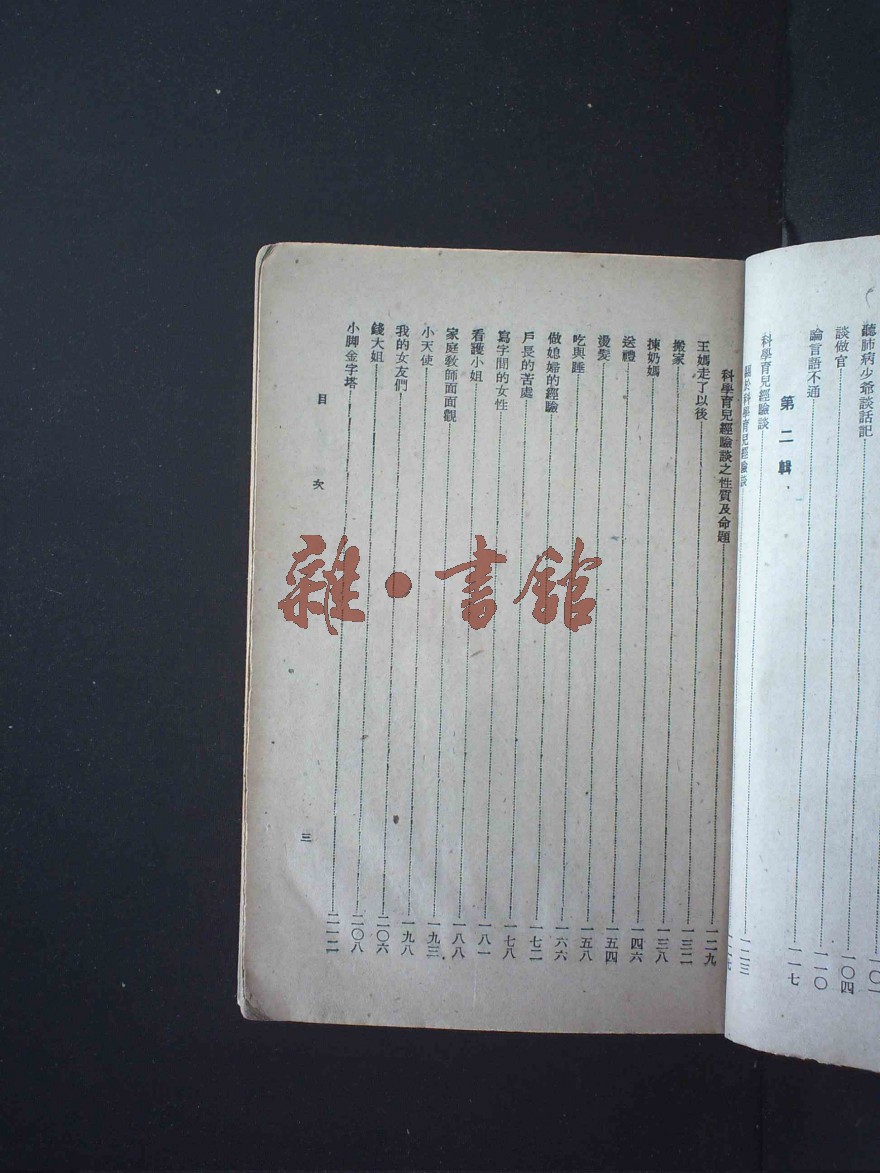 一〇一
聽肺病少爺談話記一〇四
談做官一一〇
論言語不通一一七
第二輯
科學育兒經驗談一二三
關於科學育兒經驗談
科學育兒經驗談之性質及命題一二九
王媽走了以後一三二
搬家一三八
揀奶媽一四六
送禮一五四
燙髮一五八
吃與睡一六六
做媳婦的經驗一七二
戶長的苦處一七八
寫字間的女性一八一
看護小姐一八八
家庭教師面面觀一九三
小天使一九八
我的女友們二〇六
錢大姐二〇八
小脚金字塔二一二
目次
三
雜·書館